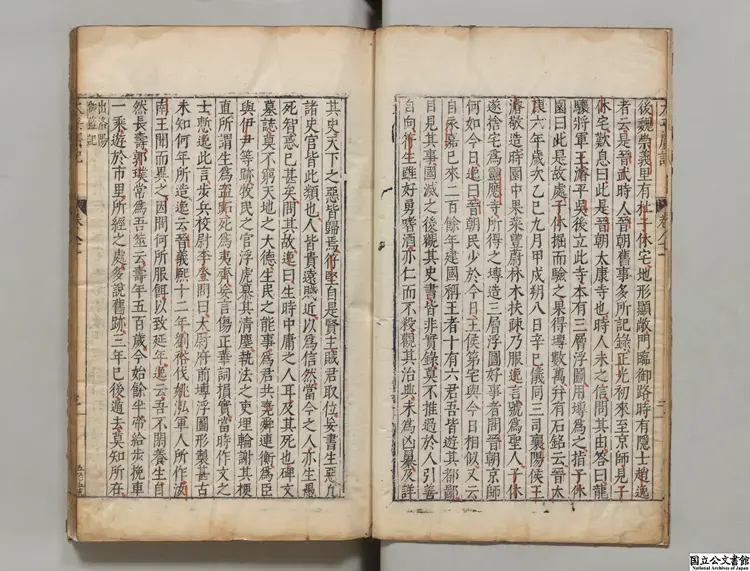 後魏崇義里有杜子休宅地形顯敞門臨御路時有隱士趙逸
者云是晉武時人晉朝舊事多所記錄正光初來至京師見子
休宅歎息曰此是晉朝太康寺也時人未之信問其由答曰龍
驤將軍王濬平吳後立此寺本有三層浮圖用塼為之指子休
園曰此是故處子休掘而驗之果得塼數萬并有石銘云晉太
康六年歲次乙巳九月甲戌朔八日辛巳儀同三司襄陽侯王
濬敬造時園中果菜豐蔚林木扶疎乃服逸言號為聖人子休
遂捨宅為靈應寺所得之塼造三層浮圖好事者問晉朝京師
何如今日逸曰晉朝民少於今日王侯第宅與今日相似又云
自永嘉已來二百餘年建國稱王者十有六君吾皆遊其都鄙
目見其事國滅之後觀其史書皆非實錄莫不推過於人引善
自向苻生雖好勇嗜酒亦仁而不殺觀其治典未為凶暴及詳
其史天下之惡皆歸焉苻堅自是賢主賊君取位妄書生惡凡
諸史官皆此類也人皆貴遠賤近以為信然當今之人亦生愚
死智惑已甚矣問其故逸曰生時中庸之人耳及其死也碑文
墓誌莫不窮天地之大德生民之能事為君共堯舜連衡為臣
與伊尹等跡牧民之官浮虎慕其清塵執法之吏埋輪謝其梗
直所謂生為盜跖死為夷齊妄言傷正華詞損實當時作文之
士慙逸此言步兵校尉李登問曰太尉府前塼浮圖形製甚古
未知何年所造逸云晉義熙十二年劉裕伐姚泓軍人所作汝
南王聞而異之因問何所服餌以致延年逸云吾不閑養生自
然長壽郭璞常為吾筮云壽年五百歲今始餘半帝給步挽車
一乘遊於市里所經之處多說舊跡三年已後遁去莫知所在
出洛陽
伽藍記
国立公文書館
National Archives of Japan